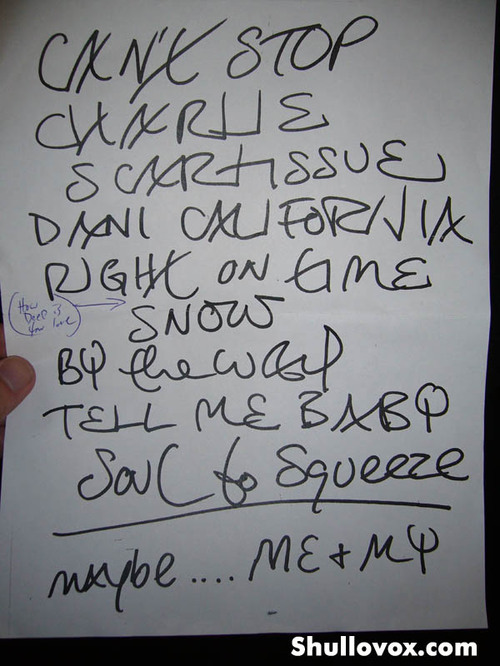 CAN'T STOP
CHARLIE
SCARTISSUE
DANI CALIFORNIA
RIGHT ON TIME
(How Deep is Your love)
SNOW
BY the WAY
TELL ME BABY
Soul to Squeeze
maybe.... ME + MY
Shullovox.com